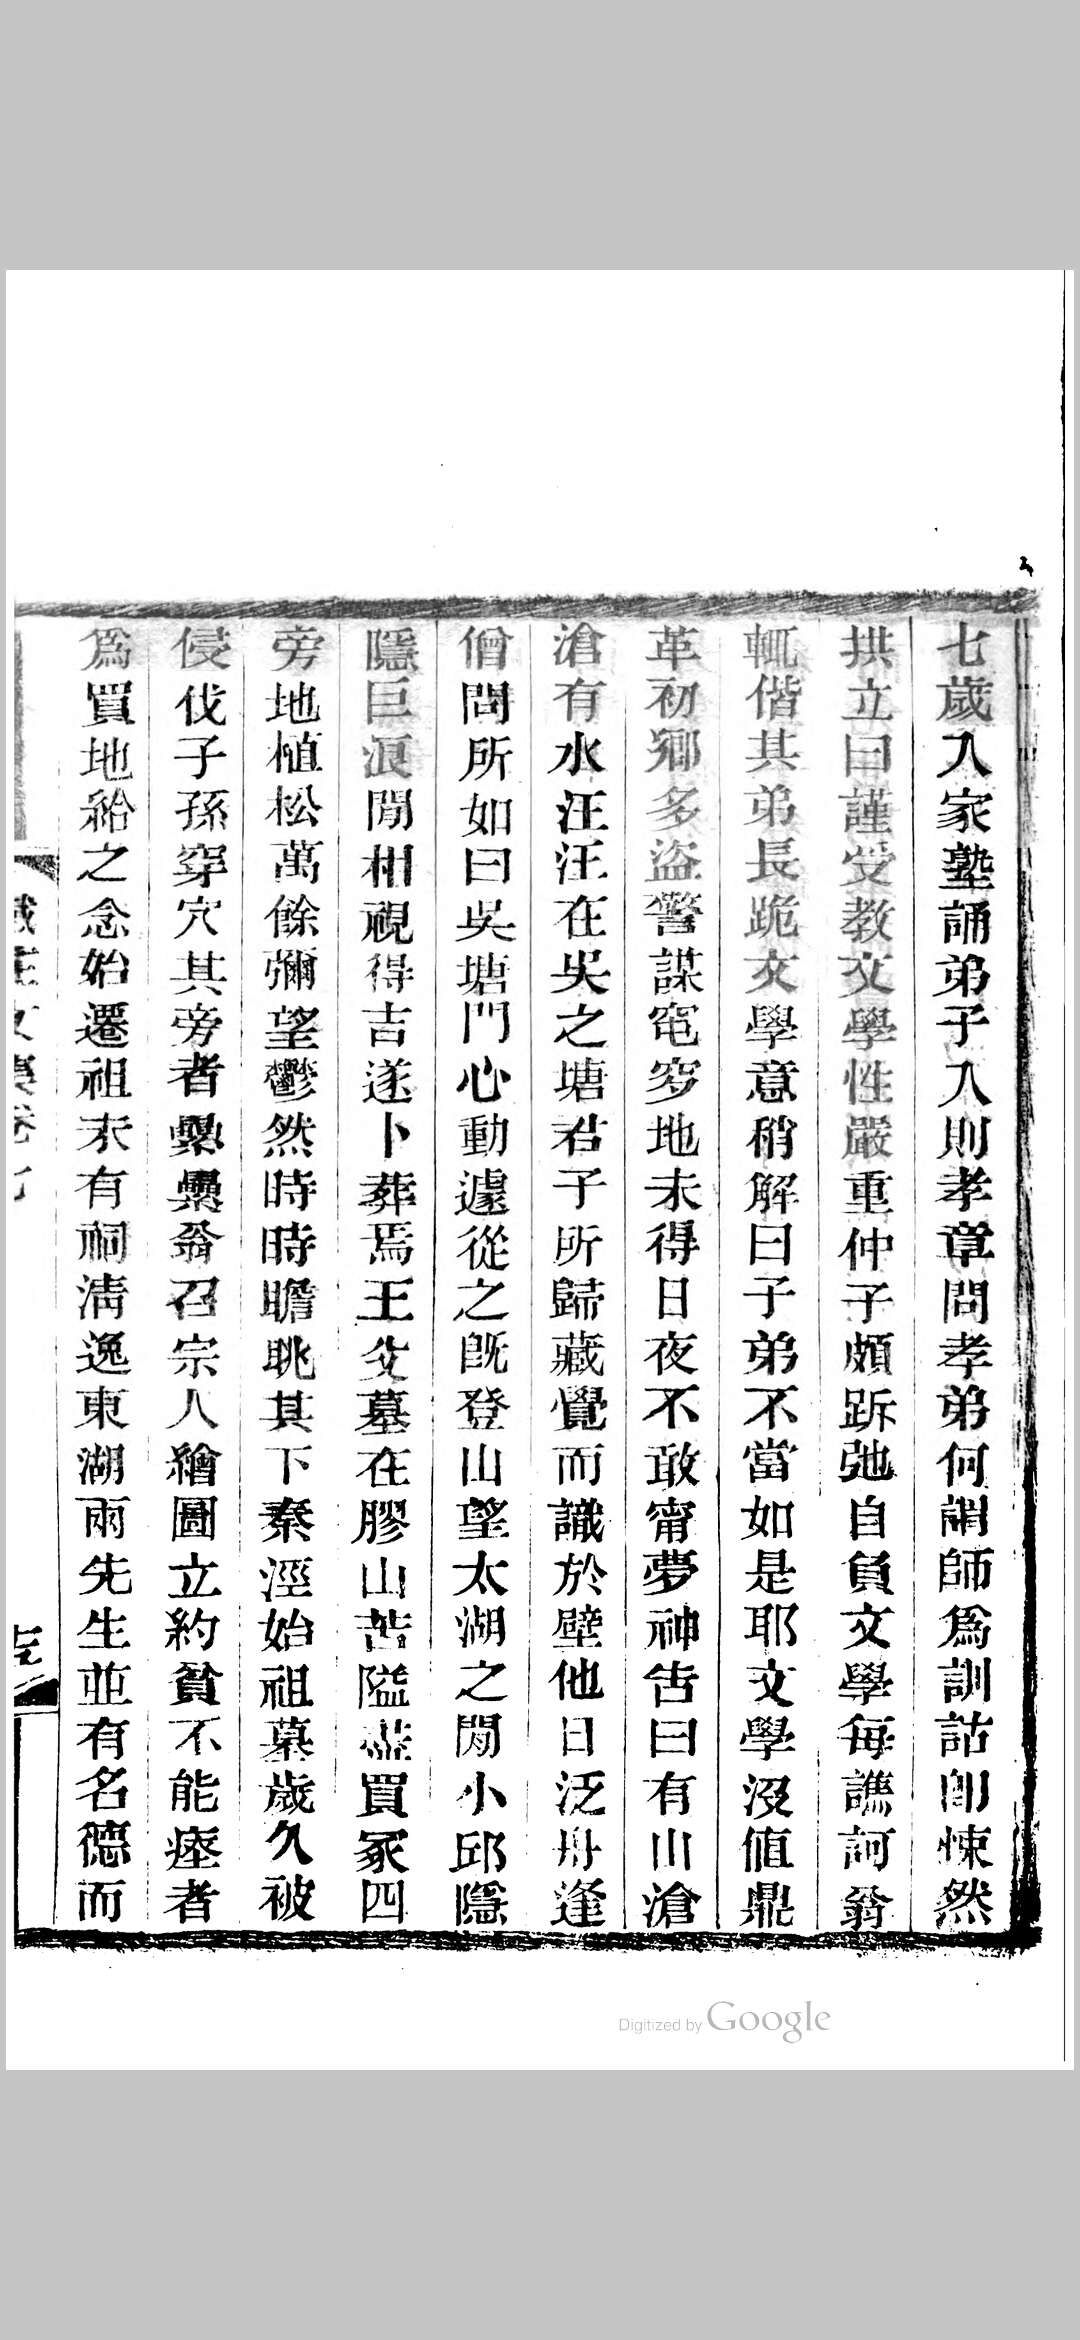 七歲入家塾誦弟子入則孝章問孝弟何謂師為訓詁卽悚然
拱立曰謹受教文學性嚴重仲子頗跅弛自負文學每譙訶翁
輒偕其弟長跪文學意稍解曰子弟不當如是耶文學沒値鼎
革初鄉多盜警謀窀穸地未得日夜不敢甯夢神告曰有山滄
滄有水汪汪在吳之塘君子所歸藏覺而識於壁他日泛舟逢
僧問所如曰吳塘門心動遽從之旣登山望太湖之閒小邱隱
隱巨浪閒相視得吉遂卜葬焉王父墓在膠山苦隘益買冢四
旁地植松萬餘彌望鬱然時時瞻眺其下秦涇始祖墓歲久被
侵伐子孫穿穴其旁者纍纍翁召宗人繪圖立約貧不能瘞者
為買地給之念始遷祖未有祠淸逸東湖兩先生並有名德而
文集卷七
Digitized by Google